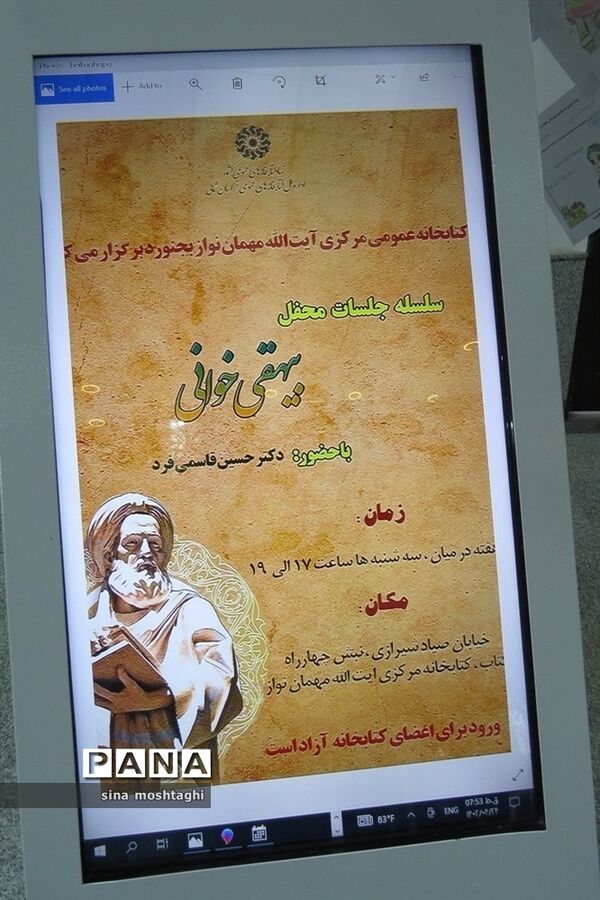 Photos - beihaghi.jpg
See all photos
Add to
نهاد کتابخانه‌های عمومی کشور
اداره کل کتابخانه‌های عمومی خراسان شمالی
کتابخانه عمومی مرکزی آیت الله مهمان نواز بجنورد برگزار می ک
سلسله جلسات محفل
بیهقی خوانی
باحضور: دکتر حسین قاسمی فرد
زمان :
هفته در میان ، سه شنبه ها ساعت ۱۷ الی ۱۹
مکان :
خیابان صیاد شیرازی ، نبش چهارراه
کتاب ، کتابخانه مرکزی آیت الله مهمان نواز
ورود برای اعضای کتابخانه آزاد است
PANA
sina moshtaghi
83°F
ENG
07:53 ق.ظ
۱۴۰۲/۰۴/۲۴